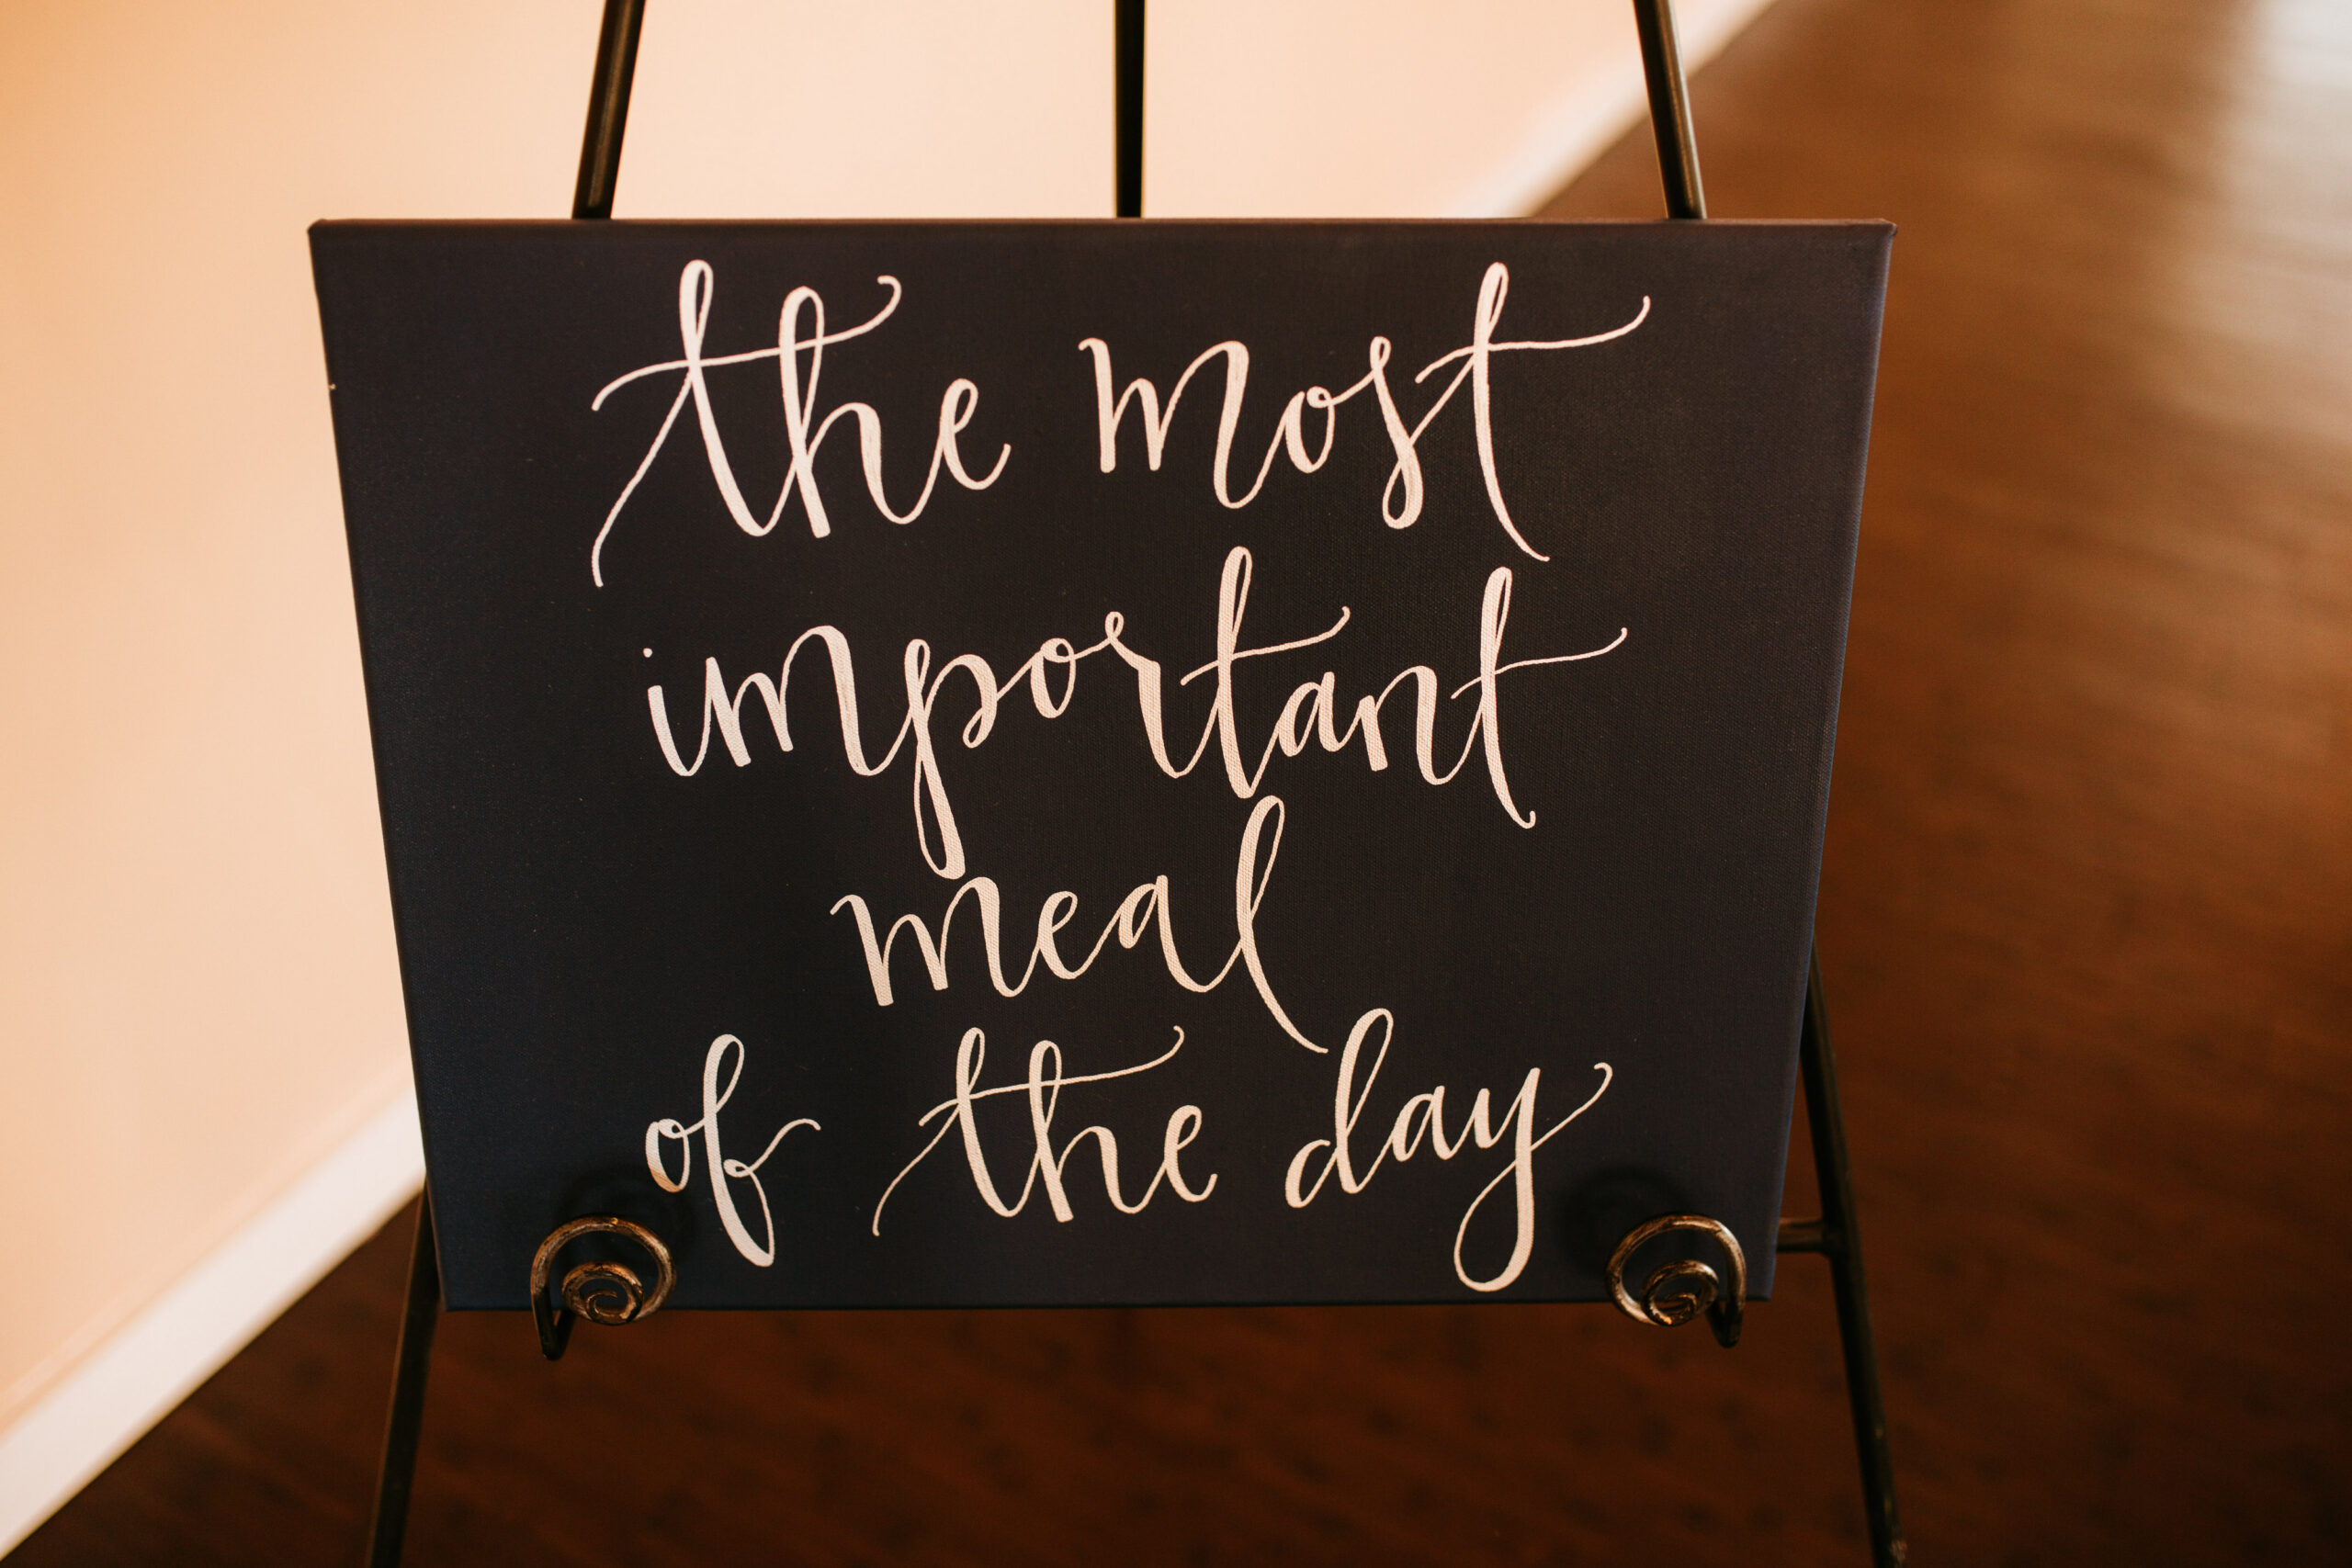 the most
important
meal
of the day